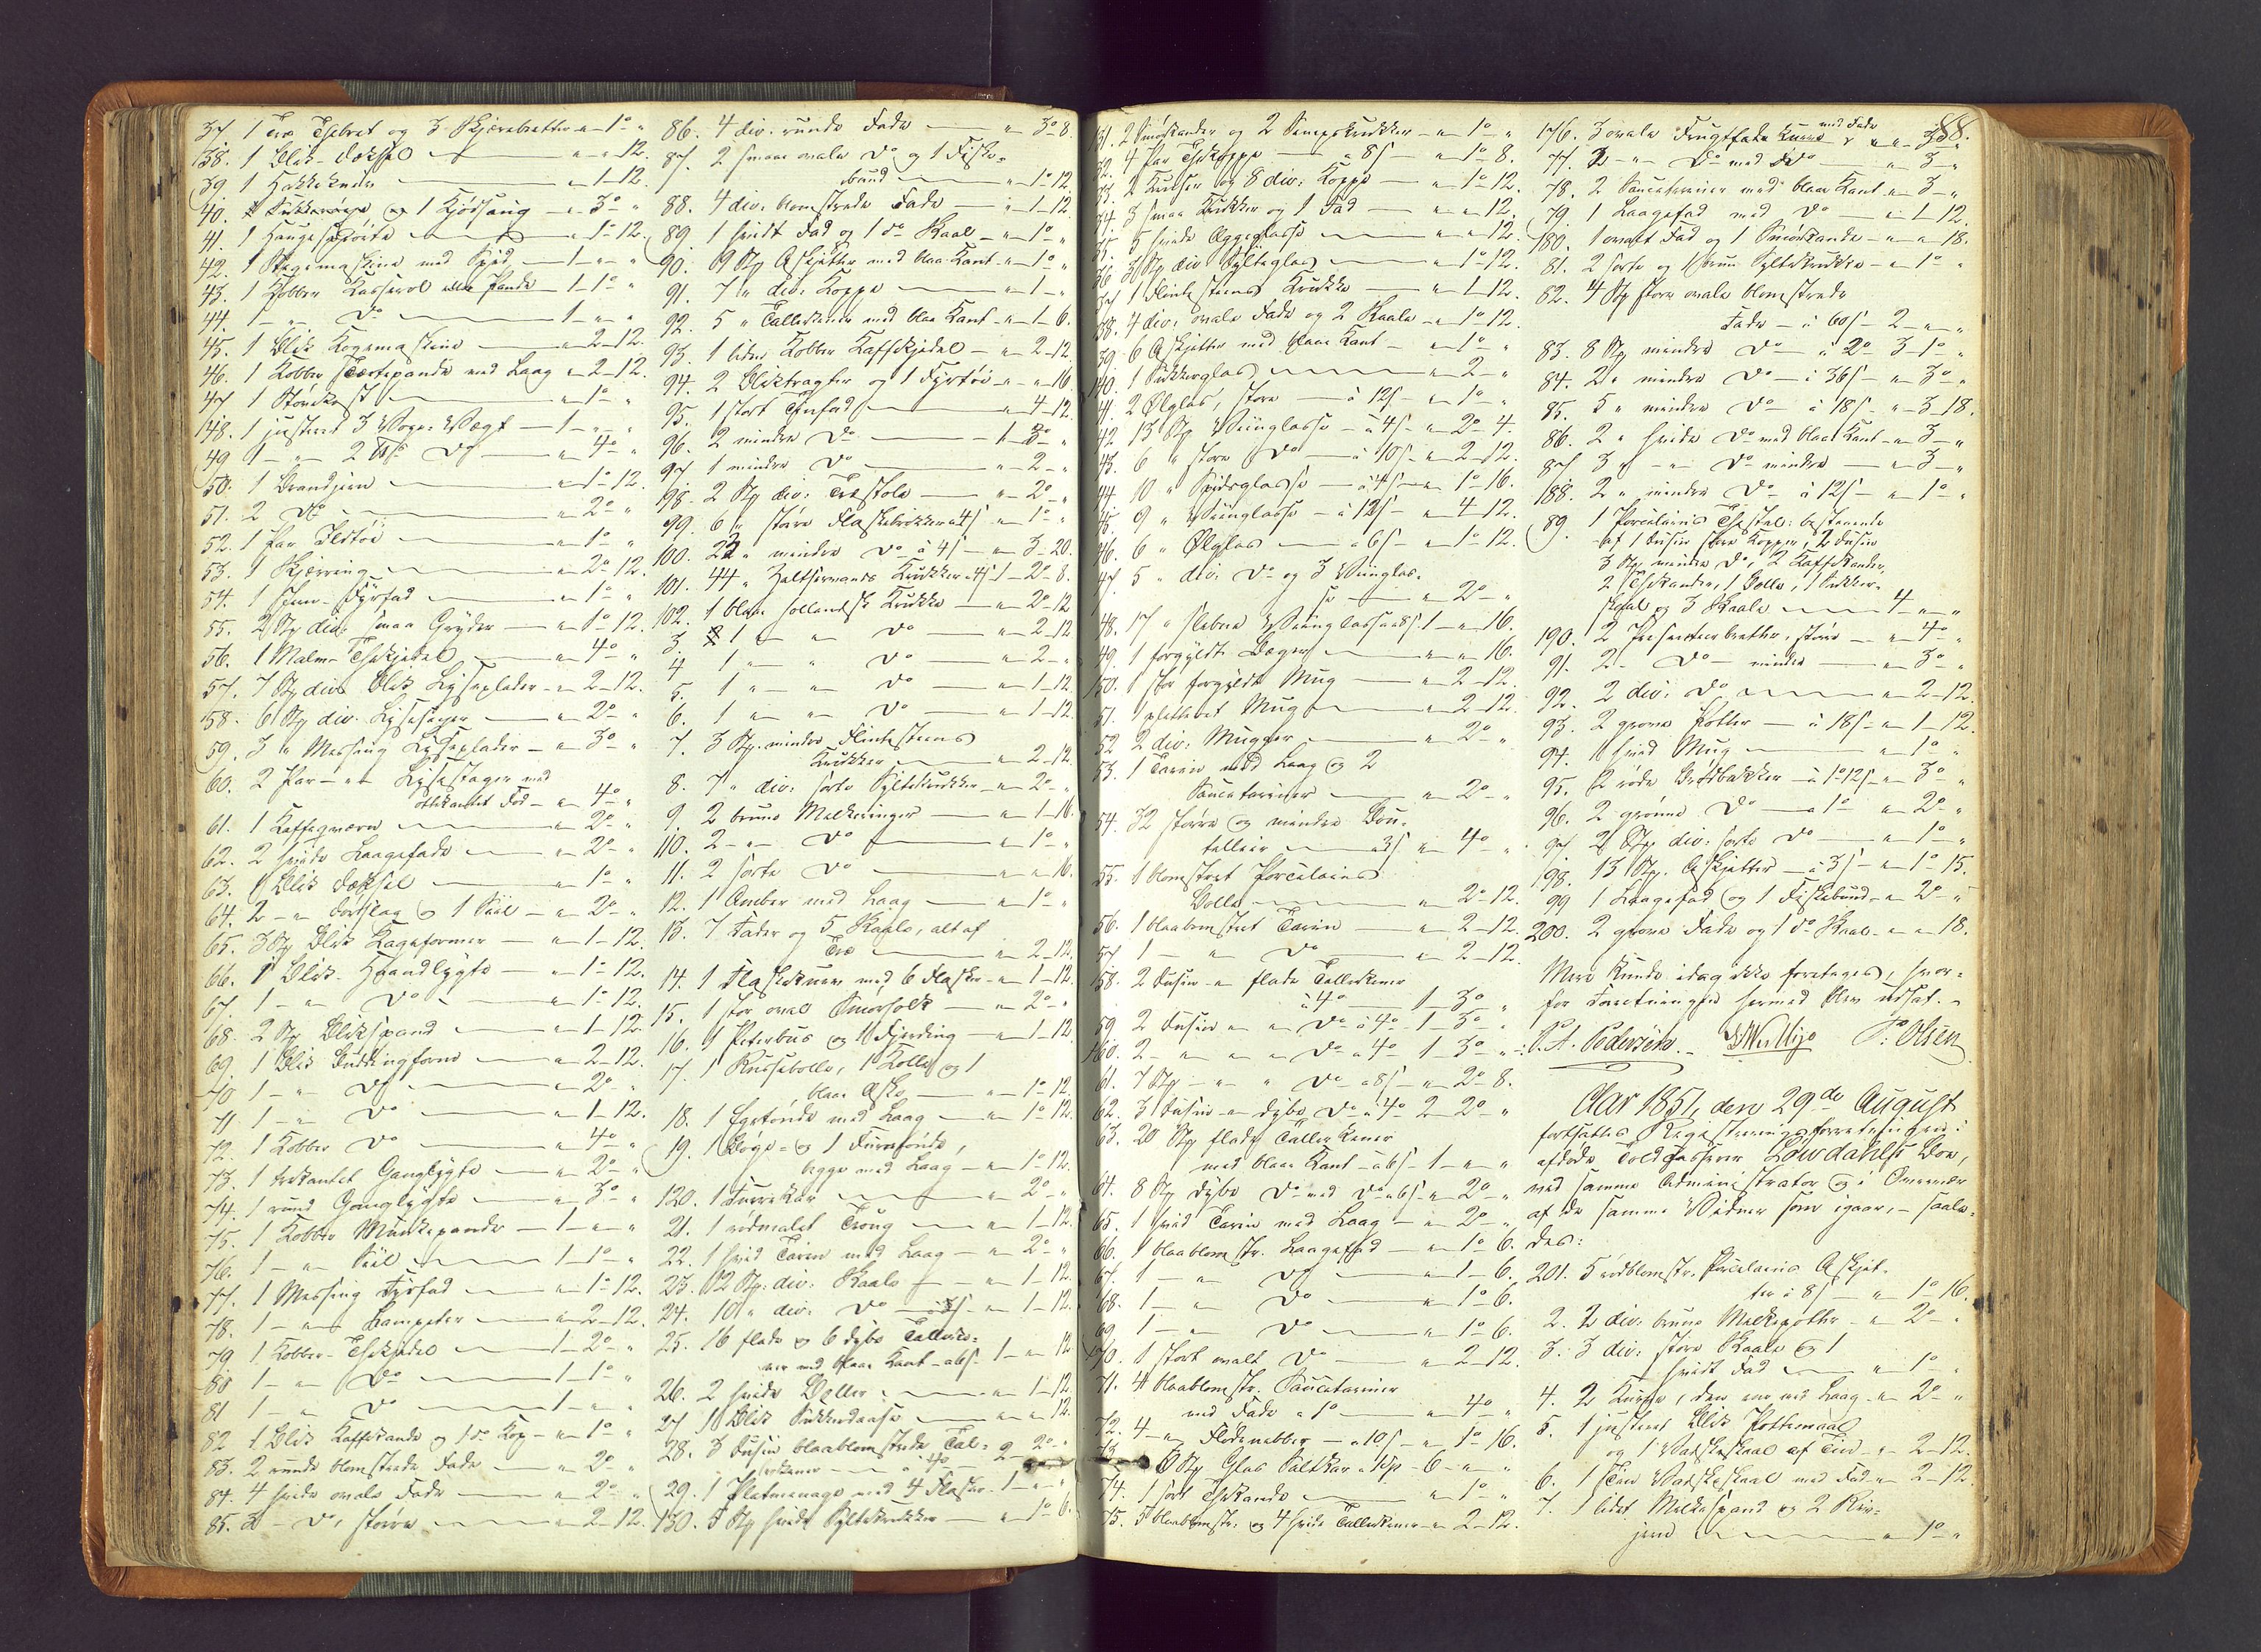 37. 1 Træ Thebret og 3 Skjærebretter - " - 1° "
138. 1 Blik- Dørslag - " - " 12.
39. 1 Hakkekniv - " 1 - 12.
40. 1 og 1 Kjødsaug - " 3° "
41. 1 Haugesprøite - " 1° 12.
42. 1 Stegemaskine med Spid - 1 - " - "
43. 1 Kobber Kasserol eller Pande - 1 - 1° "
44. 1 - " - D° - 1 - " - "
45. 1 Blik Kogemaskine - " 2 - 12.
46. 1 Kobber Tærtepande med Laag - " 2 - 12.
47. 1 - " 1° "
148. 1 justeret 3 Vogs Vægt - 1 - " - "
49. 1 - " - 2 D° - " 4° "
50. 1 Brandjern - " 1° 12.
51. 2 D° - " 2° "
52. 1 Par Ildtøi - " 1° "
53. 1 - " 2° 12.
54. 1 Fyrfad - " 1° "
55. 2 Stp div: smaa Gryder - " 1° 12.
56. 1 Malm- Thekjedel - " 4° "
57. 7 Stp div: Blik Lyseplader - " 2 - 12.
58. 6 Stp div. Lysestager - " 2° "
59. 3 " Messing Lyseplader - " 3° "
60. 2 Par - " - Lysestager med
ottekantet Fod - " 4° "
61. 1 Kaffeqværn - " 2° "
62. 2 hvide Laagefade - " 2° "
63. 1 Blik Dæksel - " 1° "
64. 2 - " - Dørslag og 1 Siil - " 2° "
65. 3 Stp Blik Kageformer - " 1 - 12.
66. 1 Blik- Haandlygte - " 1° 12.
67. 1 - " - D° - " 1° 12.
68. 2 Stp Blikspand - " 1 - 12.
69. 1 Blik Buddingform - " 2 - 12.
70 1 - " - D° - " 2° "
71 1 - " - D° - " 1 - 12.
72. 1 Kobber D° - " 4° "
73. 1 trekantet Ganglygte - " 2° "
74. 1 rund Ganglygte - " 3° "
75. 1 Kobber Munkepande - 1 - " - "
76. 1 - " - Siil - 1 - 1° "
77. 1 Messing Fyrfad - " 1° 12.
78. 1 - " - Lampeter - " 2 - 12.
79 1 Kobber- Thekjedel - 1 - 2° "
80 1 - " - D° - 1 - 1° "
81 1 - " - D° - 1 - " - "
82 1 Blik Kaffekande og 1 D° Kop - " 1° "
83. 2 runde blomstrede Fade - " 2° "
84. 4 hvide ovale Fade - " 2° "
85. 3 - D°, større - " 2 - 12.
86. 4 div. runde Fade - " 3° 8.
87. 2 smaae ovale D° og 1 Fiske-
bund - " 1° 12.
88. 4 div. blomstrede Fade - " 1 - 12.
89. 1 hvidt Fad og 1 d° Skaal - " 1° "
90. 9 Stp Asjetter med blaa Kant - " 1° "
91. 7 " div. Koppe - " 1 - "
92. 5 " Tallerkener med blaa Kant - " 1 - 6.
93. 1 liden Kobber Kaffekjedel - " 2 - 12.
94. 2 Bliktragter og 1 Fyrtøi - " - " 16.
95. 1 stort Tinfad - " 4 - 12.
96. 2 mindre D° - 1 - 3° "
97 1 mindre D° - " 2 - "
98. 2 Stp div: Træstole - " 2° "
99. 6 " større Flaskebrikker à 4 s - " 1° "
100. 23 " mindre D° à 4 s - " 3 - 20.
101. 44 " Krukker à 4 s 1 - 2° 8.
102. 1 blaa hollandsk Krukke - " 2° 12
3. 1 - " - D° - " 2 - 12
4 1 - " - D° - " 2 - "
5. 1 " - " D° - " 1 - 12
6. 1 - " - D° - " 1 - 12
7. 3 Stp. mindre Flintesteens
Krukker - " 2 - 12.
8. 7 " div: sorte Syltekrukker - " 2° "
9. 2 brune Melkeringer - " 1 - 16.
110. 2 - " - D° - " 1° "
11. 2 sorte D° - " - " 16.
12. 1 Ambar med Laag - " 1° "
13. 7 Fade og 5 Skaale, alt af
Træ - " 2 - 12.
14. 1 Flaskekurv med 6 Flasker - " 1 - 12.
15. 1 stor oval - " 2° "
16. 1 og 1 Fjerding - " 1 - 12.
17. 1 1 Kolle og 1
blaa Æske - " 1° 12.
18. 1 Egetønde med Laag - " 1° 12.
19. 1 Bøge- og 1 Furutønde,
begge med Laag - " 1° 12.
120. 1 - " 2° "
21. 1 rødmalet Troug - " 1 - 12.
22. 1 hvid Tarin med Laag - " 2° "
23. 12 Stp. div: Skaale - " 1 - 12.
24. 10 " div: D° - à 3 s - " 1 - 12.
25. 16 flade og 6 dybe Tallerke-
ner med blaa Kant - à 6 s. 1 - " 12
26. 2 hvide Boller - " 1 - 12
27 1 Blik Sukkerdaase - " - " 12.
28. 3 Dusin blaablomstrede Tal-
lerkener - à 4° - 2 - 2° "
29. 1 Platmenage med 4 Flasker - 1 - " - "
130. 5 Stp hvide Syltekrukker - " 1° 6.
131. 2 Smørkander og 2 Senepskrukker - " 1° "
32. 4 Par Thekoppe - à 8 s - " 1° 8.
33. 2 Kruser og 8 div: Koppe - " 1° 12.
34. 3 smaa Krukker og 1 Fad - " - " 12.
35. 5 hvide Æggeglasse - " - " 12.
36 3 Stp div Sylteglas - " 1° 12.
37 1 Flintesteens Krukke - " 1 - 12.
38. 4 div: ovale Fade og 2 Skaale - " 1° 12.
39. 6 Asjetter med blaa Kant - " 1° "
140. 1 Sukkerglas - " 2 - "
41. 2 Ølglas, store - à 12 s - " 1° "
42. 13 Stp Viinglasse - à 4 s - " 2° 4.
43. 6 " store D° - à 10 s - " 2 - 12.
44 10 " Spidsglasse - à 4 s - " 1° 16.
45. 9 " Viinglasse - à 12 s - " 4 - 12.
46. 6 " Ølglas - à 6 s - " 1° 12.
47. 5 " div: D° og 3 Viinglas-
se - " 2° "
48. 17 " slebne Viinglasse à 8 s 1 - " 16.
49. 1 forgyldt Bæger - " - " 16.
150. 1 stor forgyldt Mug - " 2 - 12.
51. 1 pletteret Mug - " 2 - 12.
52 2 div: Mugger - " 2° "
53. 1 Tarin med Laag og 2
Saucetariner - " 2° "
54. 32 større og mindre Bou-
teiller - à 3 s - " 4° "
55. 1 blomstret Porcelains
Bolle - " 2° 12.
56. 1 blaablomstret Tarin - " 2 - 12.
57 1 - " - D° - " 2 - 12.
158. 2 Dusin - " flade Tallerkener
à 4° - 1 - 3° "
59 2 Dusin " - " D° à 4° - 1 - 3° "
160. 2 - " - " - D° à 4° 1 - 3° "
61. 7 Stp - " - " D° à 8 s - " 2° 8.
62. 3 Dusin - " dybe D° à 4° 2 - 2° "
63. 20 Stp flade Tallerkener
med blaae Kant - à 6 s - 1 - " - "
64. 8 Stp dybe D° med D° à 6 s - " 2° "
65. 1 hvid Tarin med Laag - " 2° "
66. 1 blaablomstr. Laagefad - " 1° 6.
67. 1 - " - D° - " 1 - 6.
68. 1 - " - D° - " 1° 6.
69 1 - " - D° - " 1° 6.
170. 1 stort ovalt D° - " 2 - 12.
71. 4 blaablomstr. Saucetariner
med Fade à 1° - " 4° "
72. 4 - " - Flødenebber - à 10 s - " 1° 16.
73 6 Stp Glas Saltkar - 6 - " - "
74. 1 sort Thekande - " 1° "
75. 5 blaablomstr. og 4 hvide Tallerkener - " 2 - 12.
88.
176. 3 ovale Frugtfade Kurve med Fade - " 3 - "
77. 2 - " - D° med D° - " 3 - "
78. 2 Saucetariner med blaa Kant - " 3 - "
79. 1 Laagefad med D° - " 1 - 12.
180. 1 ovalt Fad og 1 Smørkande - " - " 18.
81. 2 sorte og 1 bruun Syltekrukke - " 1° "
82. 4 Stp store ovale blomstrede
Fade - à 60 s - 2 - " - "
83. 8 Stp mindre D° - à 2° 3 - 1° "
84. 2 " mindre D° - à 36 s - " 3° "
85. 5 " mindre D° - à 18 s - " 3 - 18.
86. 2 " hvide D° med blaa Kant - " 3 - "
87. 3 " - " D° mindre - " 3 - "
188. 2 " mindre D° - à 12 s - " 1° "
89. 1 Porcelains Thestel: bestaaende
af 1 Dusin store Kopper, 2 Dusin
3 Stp. mindre D°, 2 Kaffekander,
2 Thekander, 1 Bolle, 1 Sukker-
skaal og 3 Skaale - 4 - " - "
190. 2 Præsenteerbretter, større - " 4° "
91. 2 - D° - mindre - " 3° "
92. 2 div: D° - " 2 - 12.
93. 2 grove Potter - à 18 s - " 1 - 12.
94. 1 hvid Mug - " 1° "
95. 2 røde Brødbakker - à 1° 12 s - " 3° "
96. 2 grønne D° - à 1° - " 2° "
97 2 Stp div: sorte D° - " 1° "
198. 13 Stp. Asjetter - à 3 s - " 1° 15.
99 1 Laagefad og 1 Fiskebund - " 2° "
200. 2 grove Fade og 1 d° Skaal - " - " 18.
Mere kunde idag ikke foretages, hvor-
for Forretningen hermed blev udsat. -
P. A. Pedersen. - P. Olsen
Aar 1851, den 29de August
fortsattes Registreringsforretningen i
afdøde Toldkasserer Løwdahls Boe,
ved samme Administrator og i Overvær
af de samme Vidner som igaar, - saale-
des:
201. 5 rødblomstr. Porcelains Asjet-
ter à 8 s - " 1° 16.
2. 2 div: brune Melkepotter - " 2° "
3. 3 div: store Skaale og 1
hvidt Fad - " 1° "
4. 2 Kurve, den ene med Laag - " 2° "
5. 1 justeret Blik Pottemaal
og 1 Vadskeskaal af Tin - " 2 - 12.
6. 1 Tin Vadskeskaal med Fad - " 2 - 12.
7. 1 lidet Melkespand og 2 Riv-
jern - " 1° "